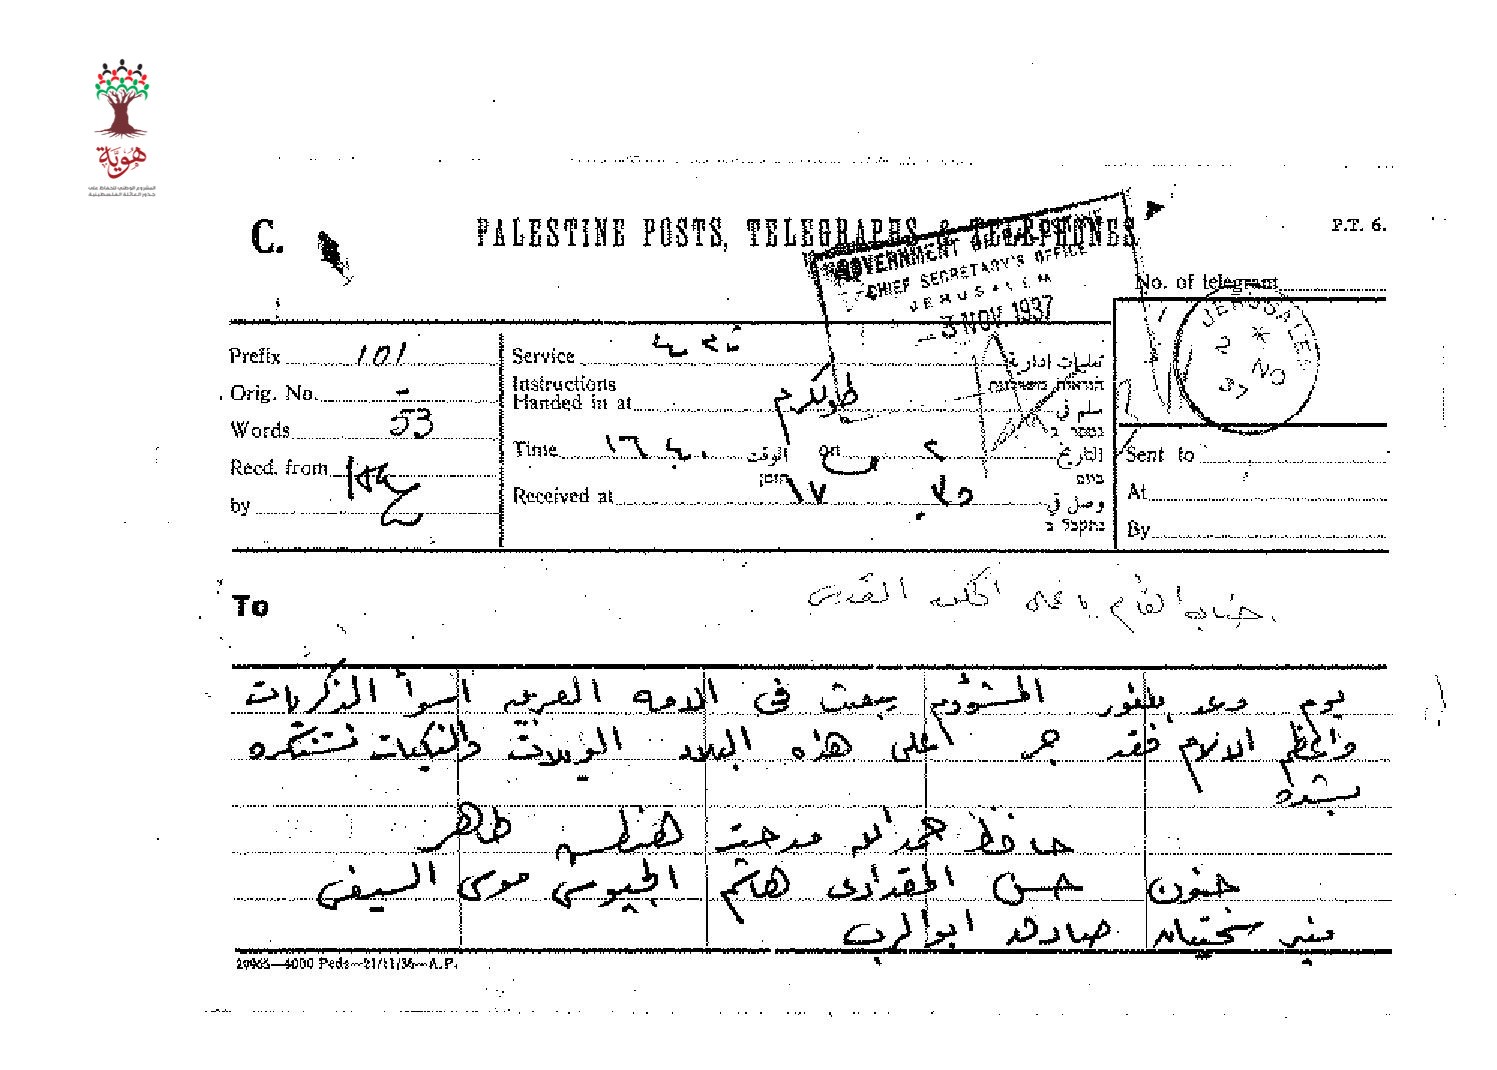 هوية
المشروع الوطني للحفاظ على
جذور العائلة الفلسطينية
C. PALESTINE POSTS, TELEGRAPHS & TELEPHONES P.T. 6.
GOVERNMENT
CHIEF SECRETARY'S OFFICE
JERUSALEM
3 NOV. 1937
No. of telegram
JERUSALEM
2 NO
37
Prefix 101
Orig. No. -
Words 53
Recd. from
by
Service تعليمات ادارية
Instructions
Handed in at طولكرم سلم في
Time ١٦ ٤٠ الوقت on ٢ التاريخ
Received at ١٧ ٣٥ وصل في
Sent to
At
By
To
جناب القائم باعمال المندوب القدس
يوم وعد بلفور المشؤوم يبعث في الامه العربيه اسوأ الذكريات
والام فقد جر على هذه البلاد الويلات والنكبات نستنكره
بشده
حافظ حمدالله مدحت طاهر
حنون حسن المقدادى هاشم الجيوسي موسى السيفي
منير سختيان صادق ابوالرب
4000 Pads—21/11/36—A.P.